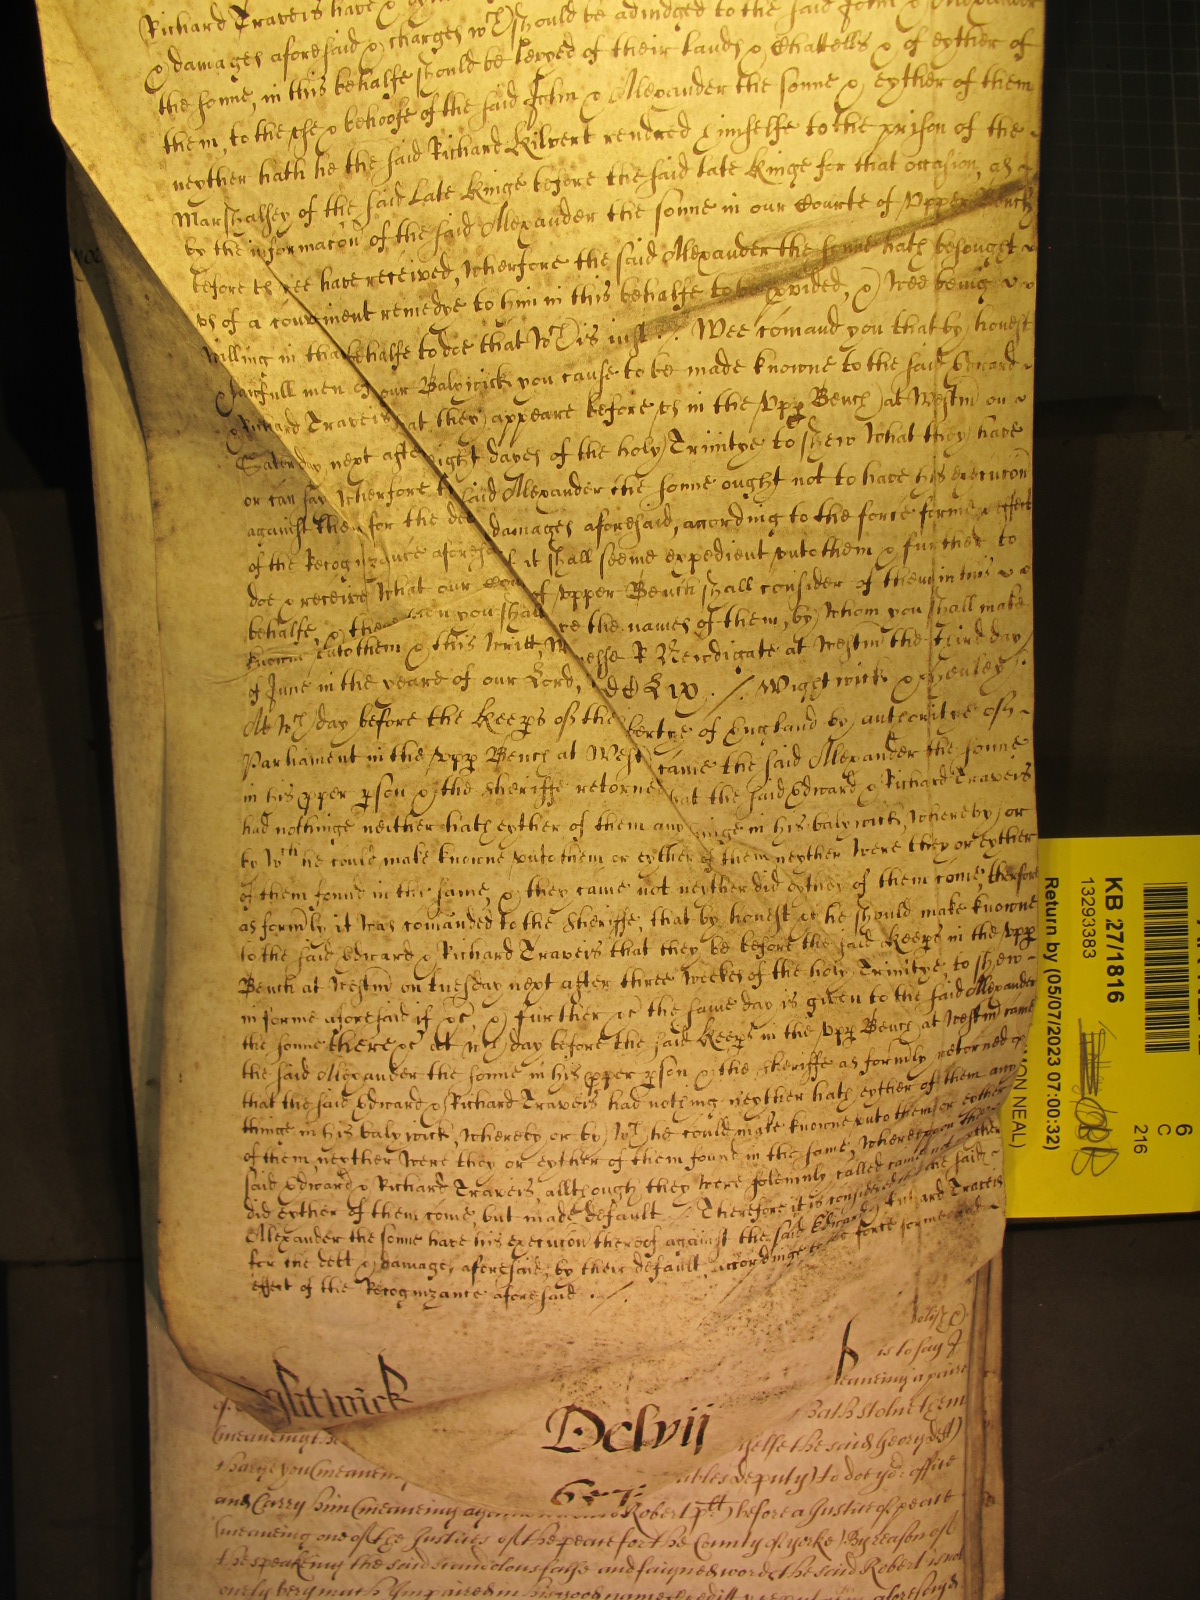 Richard Traveis have
& damages aforesaid & charges wch should be adiudged to the said John & Alexander
the sonne, in this behalfe should be levyed of their Lands & Chattells & of eyther of
them, to the vse & behoofe of the said John & Alexander the sonne & eyther of them
neyther hath he the said Richard Kilvert rendred himselfe to the prison of the
Marshalsey of the said Late Kinge before the said late Kinge for that occasion, as
by the informacon of the said Alexander the sonne in our Courte of Vpper Bench
before vs wee have received, Wherfore the said Alexander the sonne hath besought
vs of a convenient remedye to him in this behalfe to be pvided, & Wee being
willing in that behalfe to doe that wch is iust ./. Wee comand you that by honest
& lawfull men of our Balywick you cause to be made knowne to the said Edward
& Richard Traveis that they appeare before vs in the Vpp Bench at Westm on
Saterday next after eight dayes of the holy Trinitye to shew what they have
or can say wherfore the said Alexander the sonne ought not to have his execucon
against them for the debt damages aforesaid, according to the force forme & effect
of the Recognizance aforesaid if it shall seeme expedient vnto them & further to
doe & receive what our Court of Vpper Bench shall consider of them in this
behalfe, & have then you there the names of them, by whom you shall make
knowne vnto them & this writt, Witnesse R Newdigate at Westm the third day
of June in the yeare of our Lord, MDCLIX ./. Wightwick & Henley /.
At wch day before the Keeps of the libertye of England by authoritye of
Parliament in the Vpp Bench at Westm came the said Alexander the sonne
in his pper pson & the Sheriffe retorned that the said Edward & Richard Traveis
had nothinge neither hath eyther of them any thinge in his balywick, whereby or
by wch he could make knowne vnto them or eyther of them neyther were they or eyther
of them found in the same, & they came not neither did eyther of them come, therfore
as formly it was comanded to the Sheriffe, that by honest &c he should make knowne
to the said Edward & Richard Traveis that they be before the said Keeps in the Vpp
Bench at Westm on Tuesday next after three weekes of the holy Trinitye, to shew
in forme aforesaid if &c, & further &c the same day is given to the said Alexander
the sonne there &c At wch day before the said Keeps in the Vpp Bench at Westm came
the said Alexander the sonne in his pper pson & the Sheriffe as formly retorned
that the said Edward & Richard Traveis had nothing neyther hath eyther of them any
thinge in his balywick, whereby or by wch he could make knowne vnto them or eyther
of them, neyther were they or eyther of them found in the same, whereupon the
said Edward & Richard Traveis, allthough they were solemnly called came not neither
did eyther of them come, but made default ./. Therefore it is considered that the said
Alexander the sonne have his execucon thereof against the said Edward & Richard Traveis
for the debt & damages aforesaid, by their default, accordinge to the force forme and
effect of the Recognizance aforesaid ./.
is to say
meaneing a paire
Wightwick
hath stolne them
Dclvij
(meaneing the
selfe the said George
charge you (meaneing
Constables deputy) to doe yor office
657
and Carry him (meaneing
Robert plt) before a Justice of peace
(meaneing one of the Justices of the peace for the County of Yorke) By reason of
the speakeing the said scandolous false and faigned words the said Robert is not
onely very much Impaired in his good name
KB 27/1816
13293383
Return by (05/07/2023 07:00:32)
(ON NEAL)
6
C
216